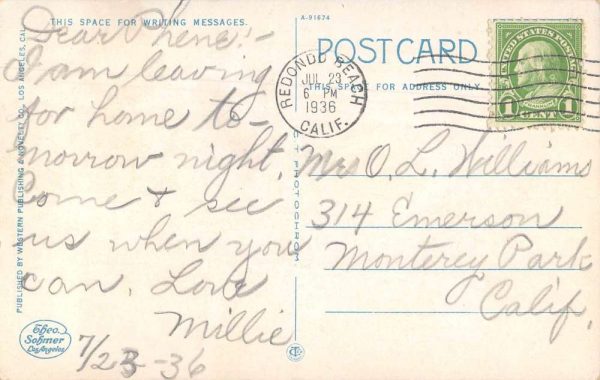 THIS SPACE FOR WRITING MESSAGES.
Dear Phene!-
I am leaving
for home to-
morrow night.
Come & see
us when you
can. Love
Millie
7/23-36
PUBLISHED BY WESTERN PUBLISHING & NOVELTY CO., LOS ANGELES, CAL.
Theo.
Sohmer
Los Angeles
A-91674
POST CARD
THIS SPACE FOR ADDRESS ONLY
REDONDO BEACH
JUL 23
6 PM
1936
CALIF.
UNITED STATES POSTAGE
1 CENT 1
Mrs O. L. Williams
314 Emerson
Monterey Park
Calif.